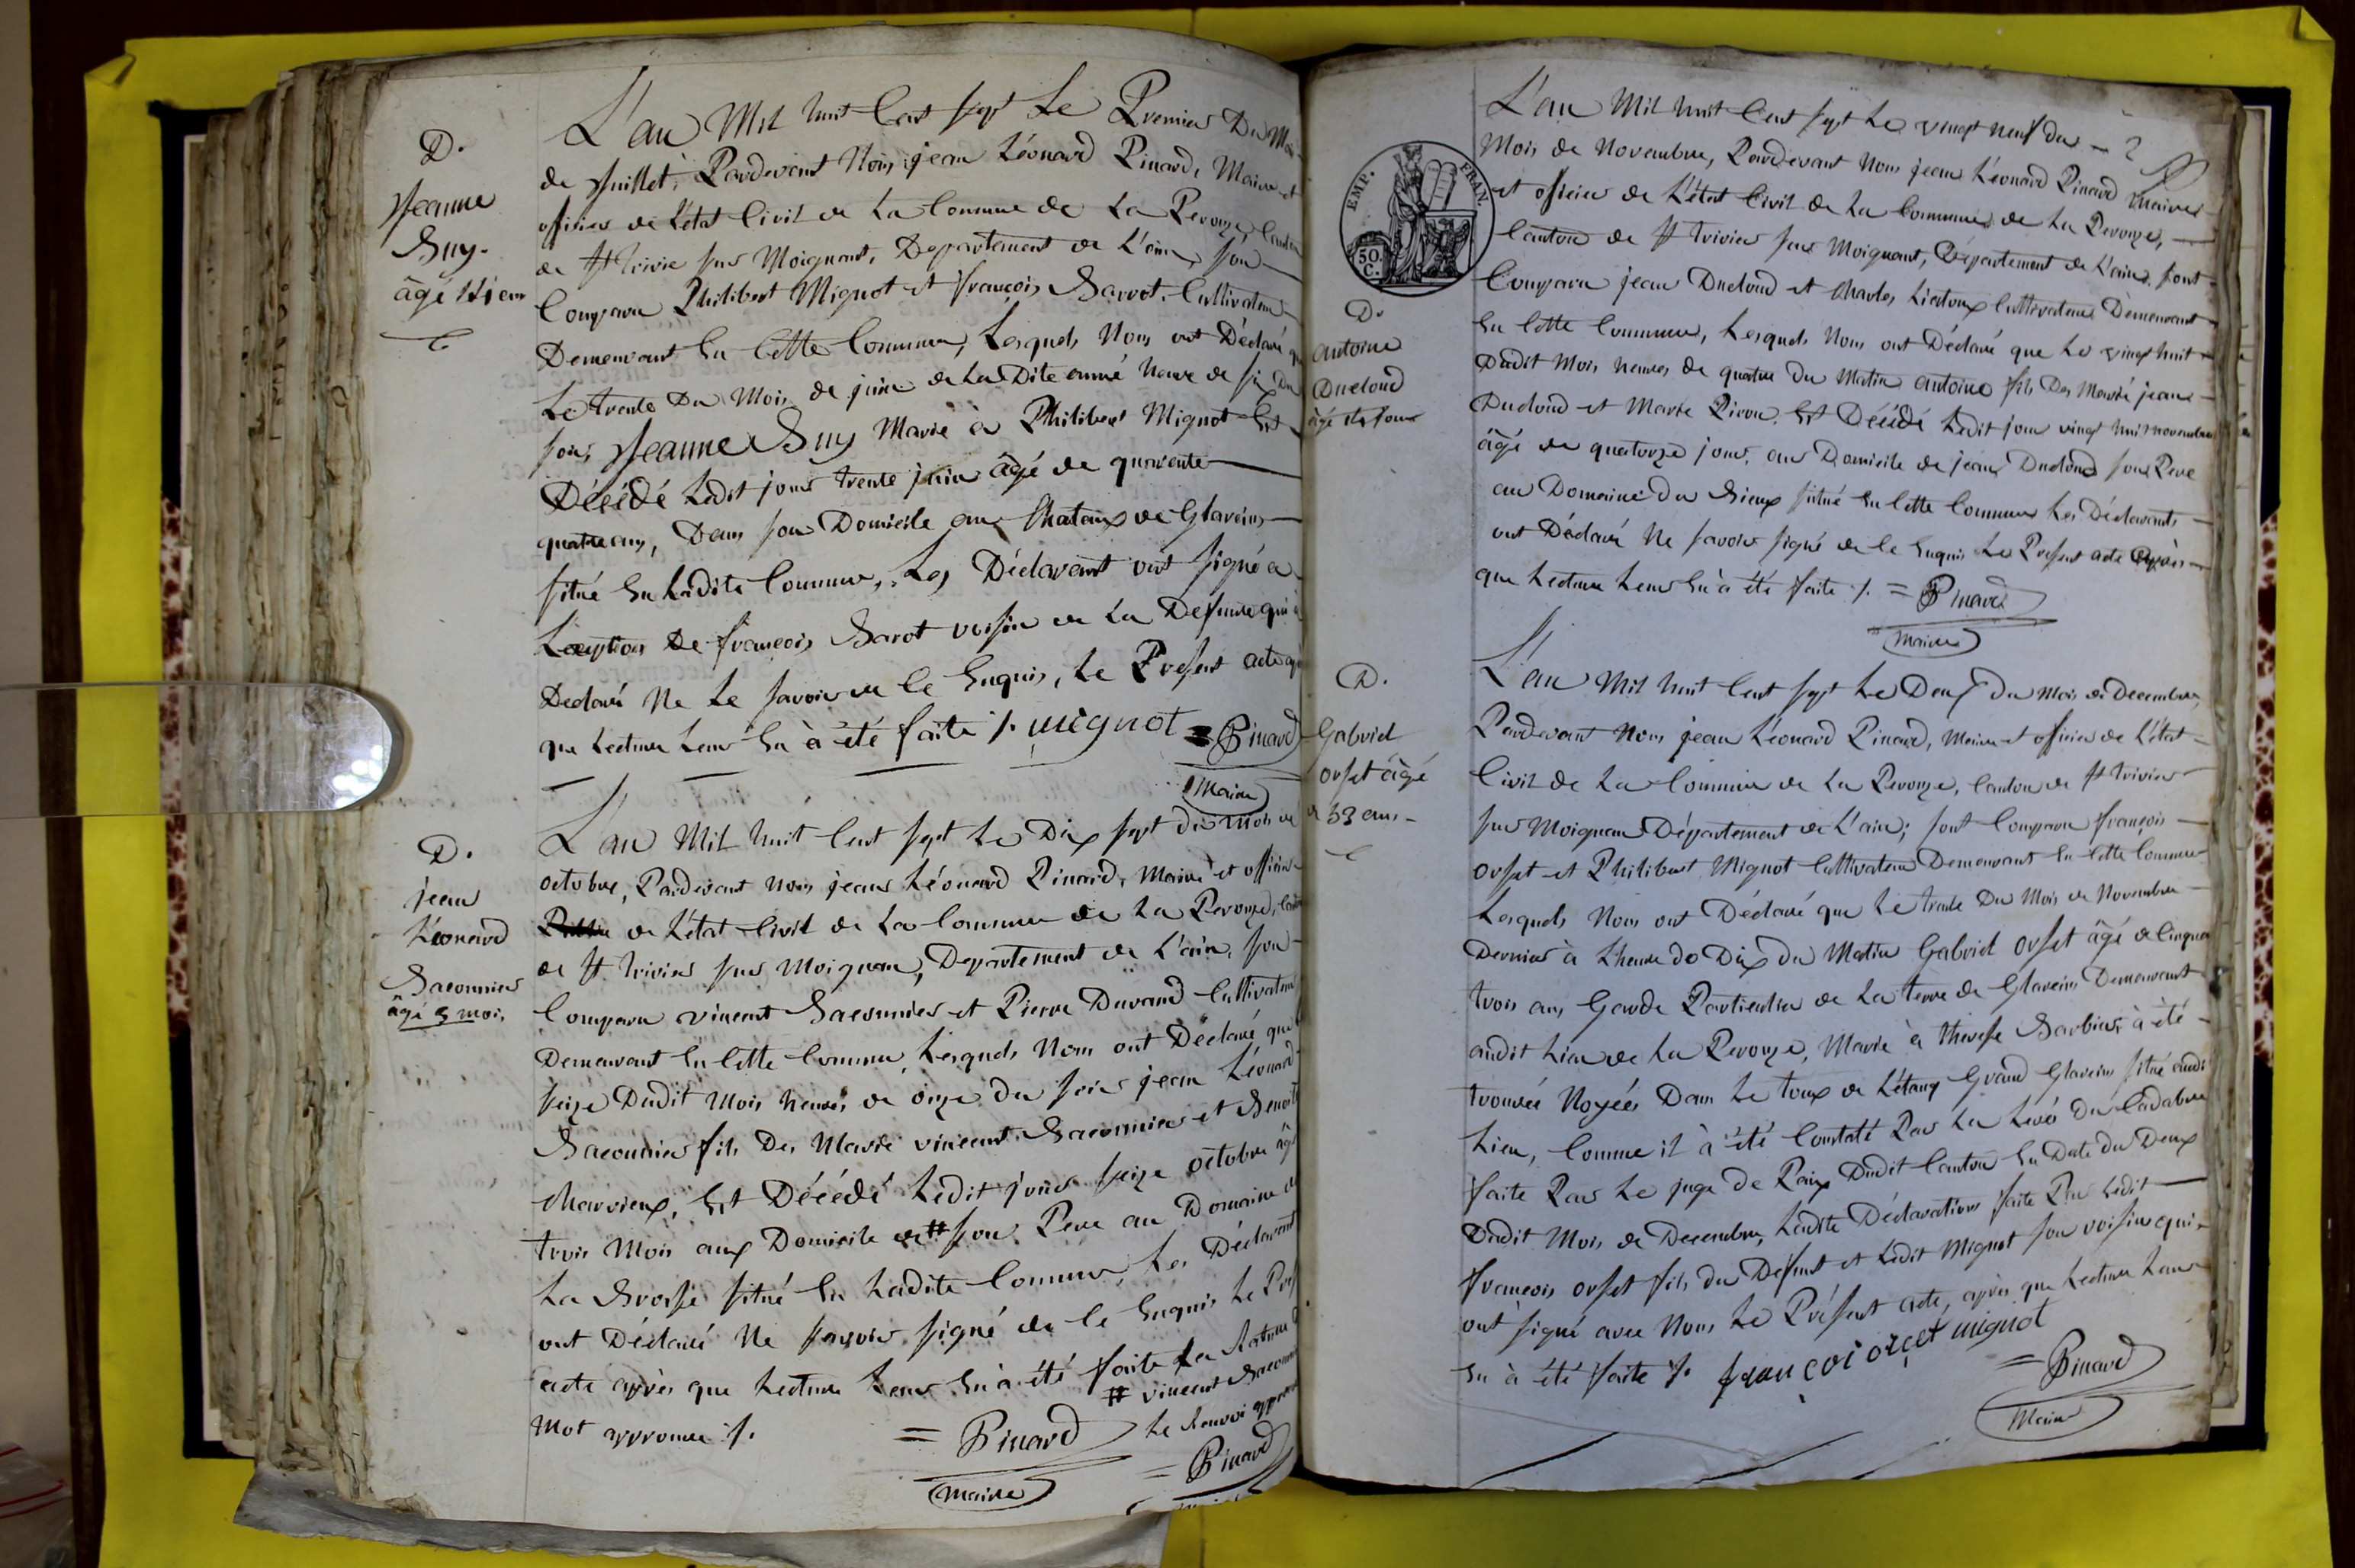 D.
Jeanne
Buy.
âgé 44 ans
L'an Mil huit Cent sept Le Premier Du Moi
de Juillet, Pardevant Nous jean Léonard Pinard, Maire et
officier de L'état Civil de La Commune de La Peyrouze, Canton
de St trivie sur Moignant, Departement de L'ain, son
Comparu Philibert Mignot et françois Barrot, Cultivateur
Demeurant En Cette Commune, Lesquels Nous ont Déclaré q
Le trente Du Mois de juin de La Dite anné heure de six Du
soir, Jeanne Buy Marié à Philibert Mignot Est
Décédé Ledit jour trente juin âgé de quarante
quatre ans, Dans son Domicile aux Chataux de Glareins
situé En Ladite Commune, Les Déclarant ont signé a
L'exeption De françois Barot voisin de La Defunte qui à
Declaré Ne Le savoir de Ce Enquis, Le Present acte ap
que Lecture Leur En à été faite /. mignot = Pinard
Maire
D.
jean
Léonard
Saconnier
âgé 3 mois,
L'an Mil huit Cent sept Le Dix sept du mois de
octobre, Pardevant Nous jean Léonard Pinard, Maire et officier
de L'état Civil de La Commune de La Peyrouze, Canton
de St trivier sur Moignan, Departement de L'ain, son
Comparu vincent Saconnier et Pierre Durand Cultivateur
Demeurant En Cette Commune, Lesquels Nous ont Déclaré que
seize Dudit Mois heures de onze du soir jean Léonard
Saconnier fils Des Marié vincent Saconnier et Benoite
Marrieux, Est Décédé Ledit jour seize octobre âgé
trois Mois aux Domicile de # son Pere au Domaine de
La Brosse situé En Ladite Commune, Les Déclarant
ont Déclaré Ne savoir signé de Ce Enquis Le Pres
acte après que Lecture Leur En à été faite La Rature d
# vincent Saconn
mot approuvé /. = Pinard Le Renvoi approuv
Maire = Pinard
EMP. FRAN.
50. C.
D.
antoine
Ducloud
âgé 14 jours
L'an Mil huit Cent sept Le vingt neuf du
Mois de Novembre, Pardevant Nous jean Léonard Pinard Maire
et officier de L'état Civil de La Commune de La Peyrouze,
Canton de St trivier sur Moignant, Département de L'ain, sont
Comparu jean Ducloud et Charles Cultivateur Demeurant
En Cette Commune, Lesquels Nous ont Déclaré que Le vingt huit
Dudit Mois heures de quatre du Matin antoine fils Des Marié jean
Ducloud et Marie Pivon Est Décédé Ledit jour vingt huit novembre
âgé de quatorze jours, au Domicile de jean Ducloud son Pere
au Domaine du situé En Cette Commune Les Déclarants
ont Déclaré Ne savoir signé de Ce Enquis Le Present acte après
que Lecture Leur En à été faite /. = Pinard
Maire
D.
Gabriel
orset âgé
de 53 ans
L'an Mil huit Cent sept Le Deux Du Mois de Decembre,
Pardevant Nous jean Léonard Pinard, Maire et officier de L'état
Civil de La Commune de La Peyrouze, Canton de St trivier
sur Moignan Département de L'ain; sont Comparu françois
orset et Philibert Mignot Cultivateur Demeurant En Cette Commune
Lesquels Nous ont Déclaré que Le trente Du Mois de Novembre
Dernier à L'heure de Dix du Matin Gabriel orset âgé de Cinquante
trois ans Garde Particulier de La terre de Glareins Demeurant
audit Lieu de La Peyrouze, Marié à therese Barbier, à été
trouvée Noyéé Dans Le toux de L'étang Grand Glareins situé audit
Lieu, Comme il à été Constaté Par La Levéé Du Cadabre
faite Par Le juge De Paix Dudit Canton En Date du Deux
Dudit Mois de Decembre, Ladite Déclaration faite Par Ledit
françois orset fils du Defunt et Ledit Mignot son voisin qui
ont signé avec Nous Le Présent acte, après que Lecture Leur
En à été faite /. françoi orçet mignot
= Pinard
Maire